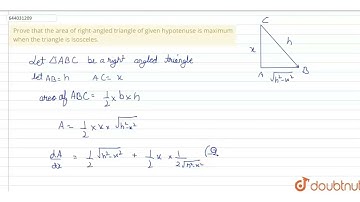 644031209
Prove that the area of right-angled triangle of given hypotenuse is maximum
when the triangle is isosceles.
Let △ABC be a right angled triangle
let AB = h AC = x
area of ABC = 1/2 x b x h
A = 1/2 x x x √h²-x²
dA/dx = 1/2 √h²-x² + 1/2 x x 1/2√h²-x² (0
C
x
h
A
B
√h²-x²
doubtnut